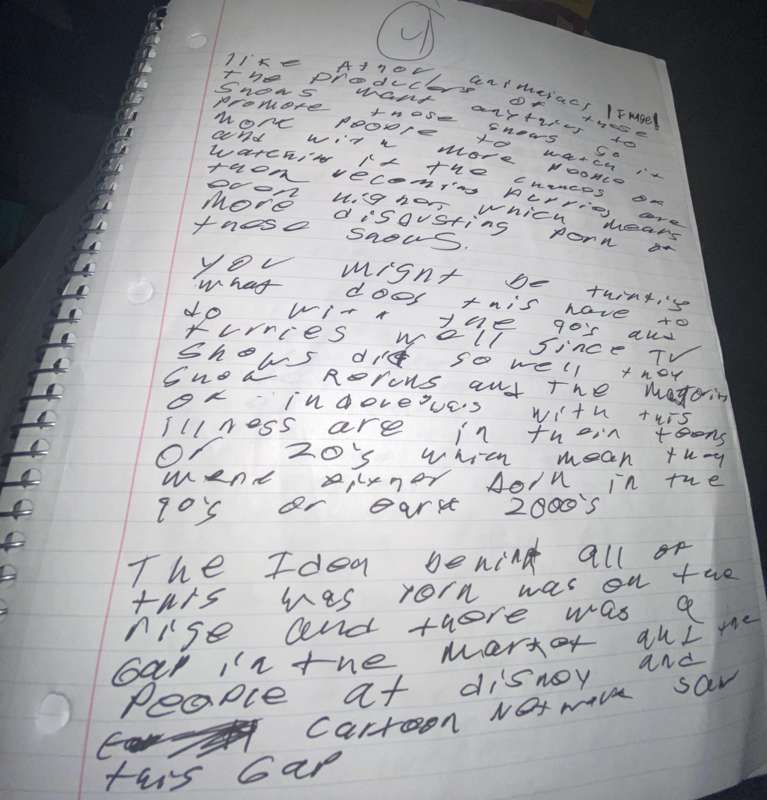 4
like Athor animiacs !IMAGE!
the producers of those
shows want anything to
promote those shows so
more people to watch it
and with more people on
watching it the chances of
them becoming furries are
even higher which means
more disgusting porn of
these shows.
You might be thinking
what does this have to
do with the 90's and
furries well since TV
shows did so well they
show Reruns and the Majority
of indeveuals with this
illness are in their teens
or 20's which mean they
were either born in the
90's or early 2000's
The Idea behind all of
this was porn was on the
rise and there was a
Gap in the Market and the
People at disney and
Cartoon Network saw
this Gap